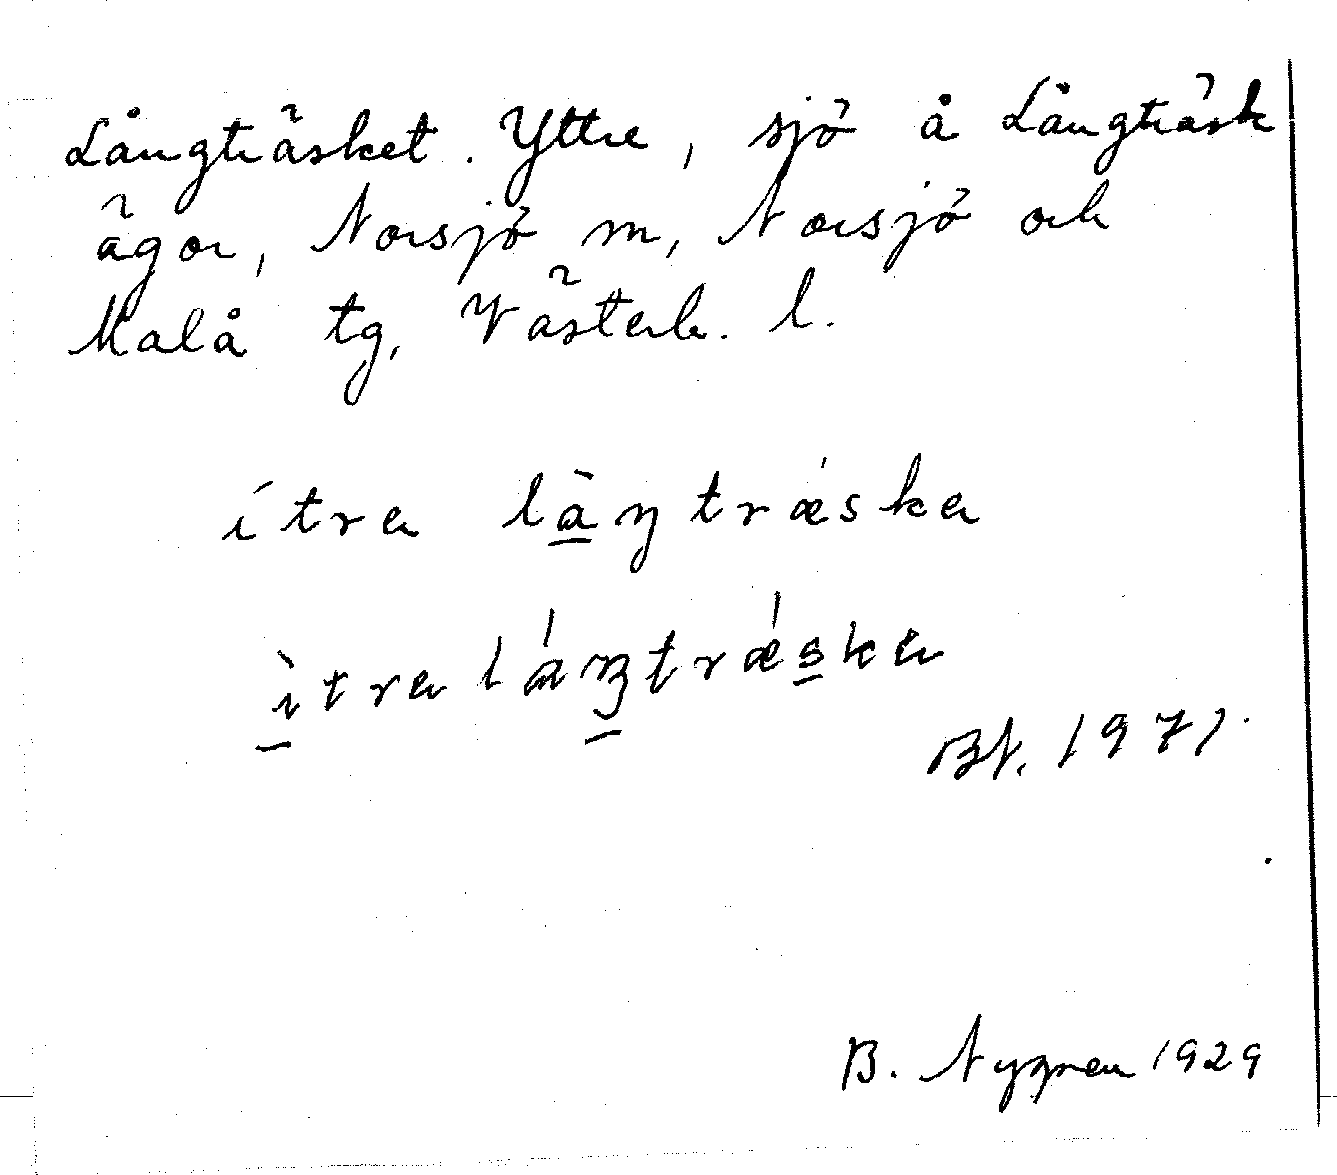 Långträsket. Yttre, sjö å Långträsk
ägor, Norsjö m, Norsjö och
Malå tg, Västerb. l.
ítra làŋtrǽska
ìtra láŋtrǽska
Bt. 1971.
B. Nygren 1929